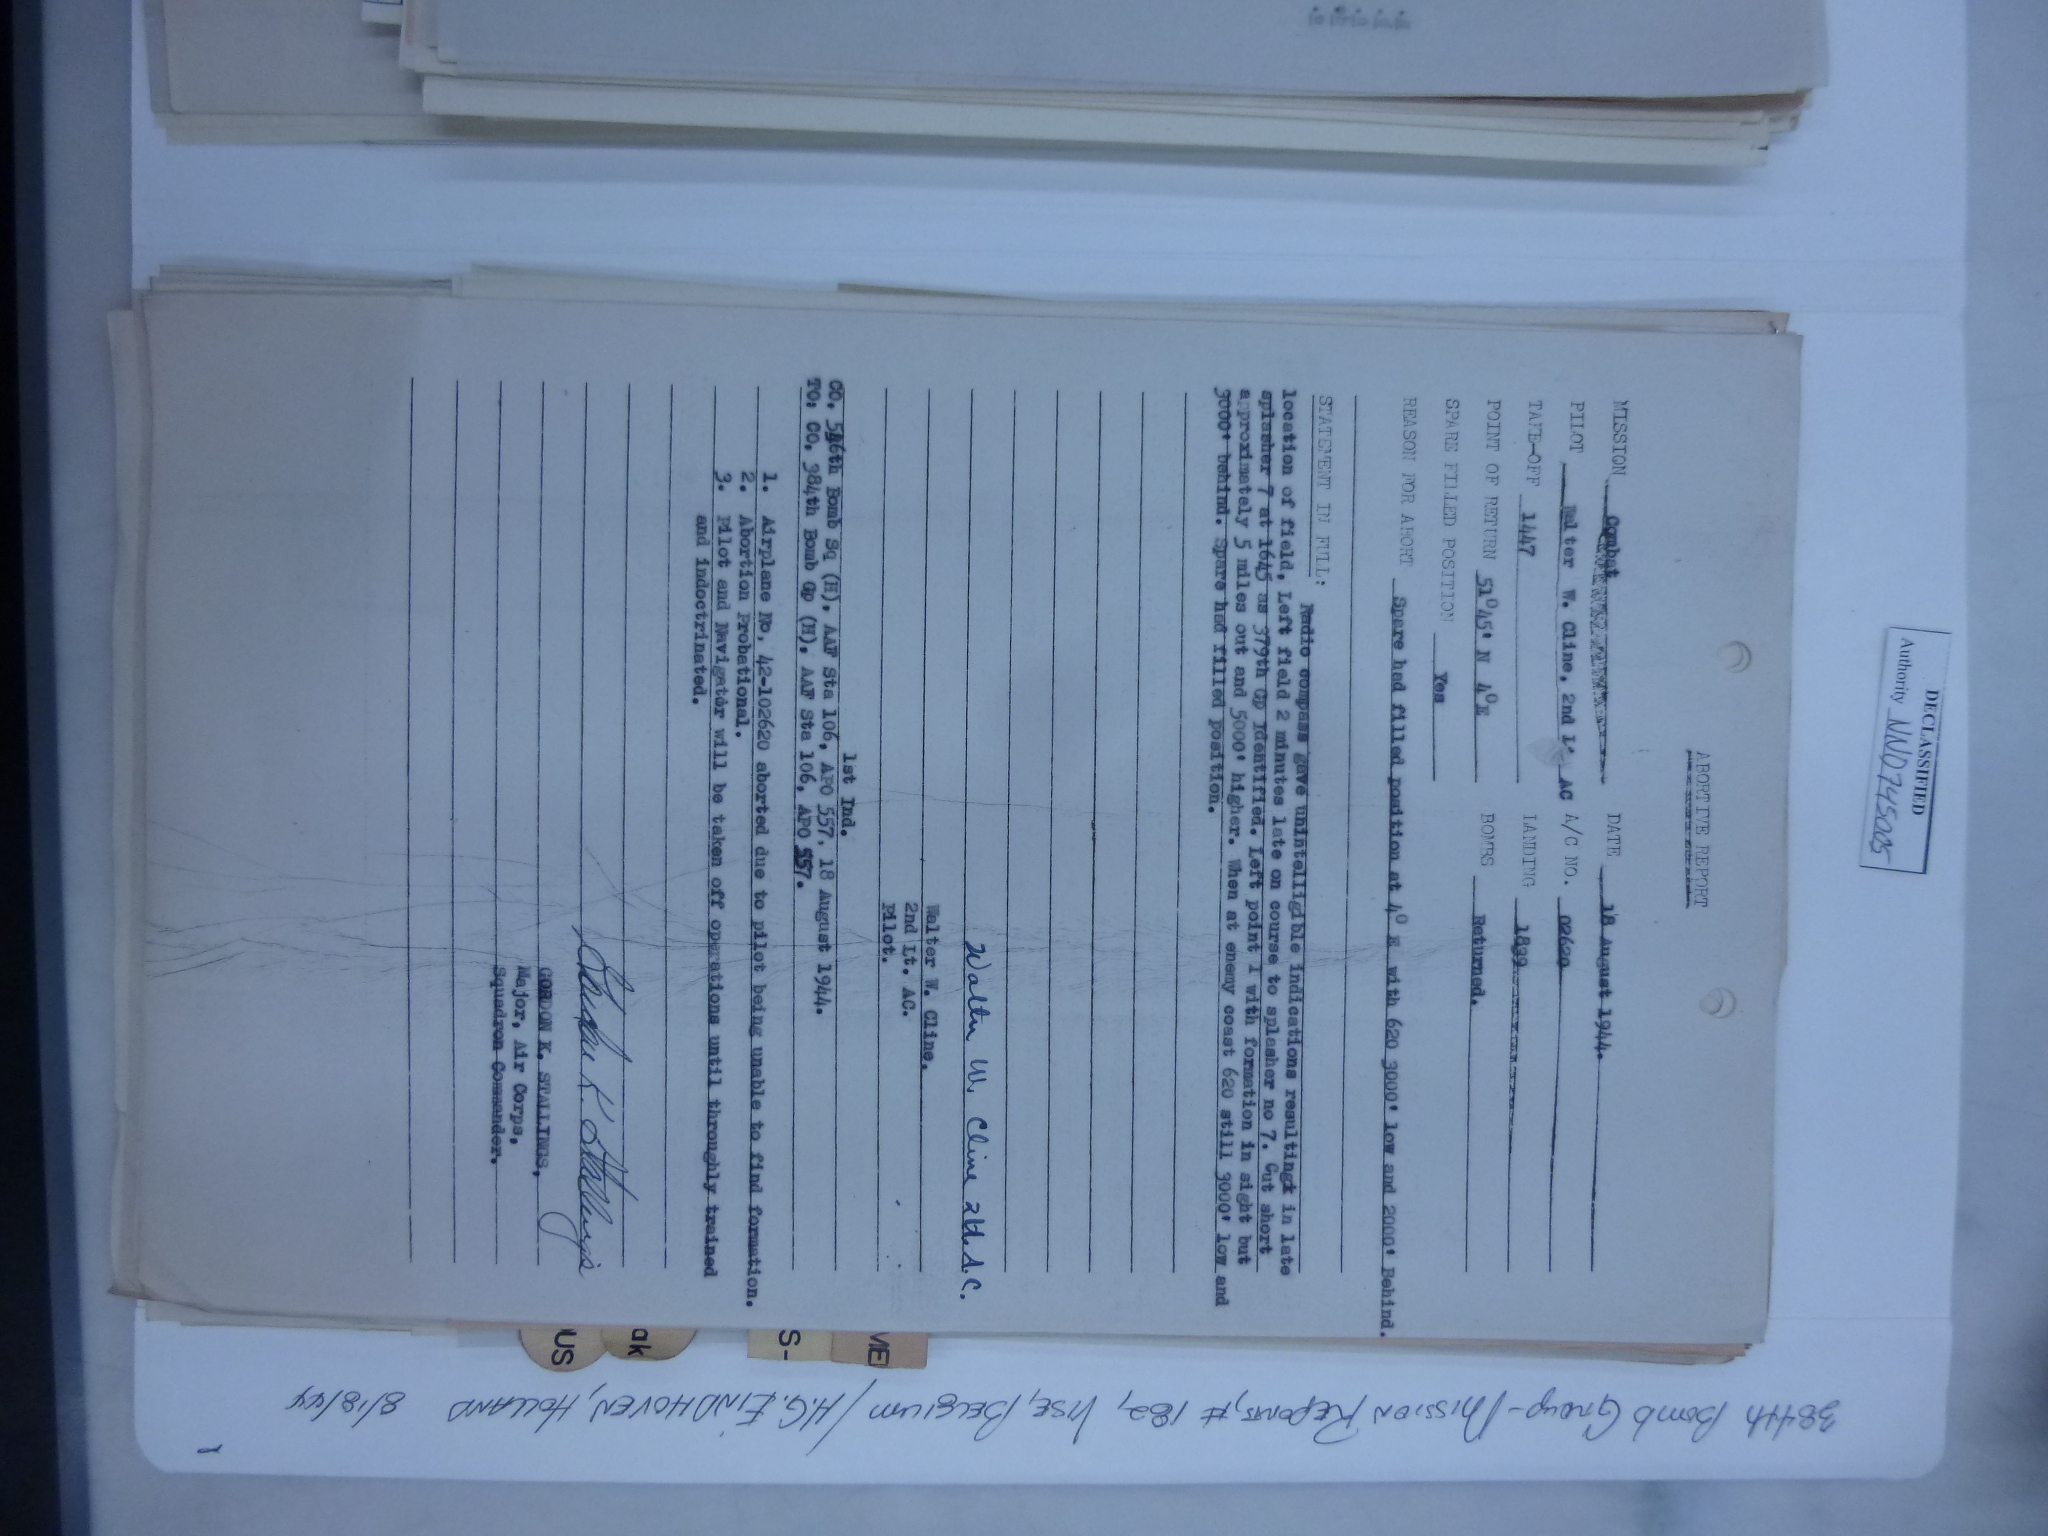 DECLASSIFIED
Authority NND745005
ABORTIVE REPORT
MISSION Combat DATE 18 August 1944.
PILOT Walter W. Cline, 2nd Lt AC A/C NO. 02620
TAKE-OFF 1447 LANDING 1839
POINT OF RETURN 51°45' N 4°E BOMBS Returned.
SPARE FILLED POSITION Yes
REASON FOR ABORT Spare had filled position at 4° E with 620 3000' low and 2000' Behind.
STATEMENT IN FULL: Radio compass gave unintelligible indications resulting in late
location of field, Left field 2 minutes late on course to splasher no 7. Cut short
splasher 7 at 1645 as 379th Gp identified. Left point 1 with formation in sight but
approximately 5 miles out and 5000' higher. When at enemy coast 620 still 3000' low and
3000' behind. Spare had filled position.
Walter W. Cline 2Lt. A.C.
Walter W. Cline,
2nd Lt. AC.
Pilot.
1st Ind.
CO, 546th Bomb Sq (H), AAF Sta 106, APO 557, 18 August 1944.
TO: CO, 384th Bomb Gp (H), AAF Sta 106, APO 557.
1. Airplane No, 42-102620 aborted due to pilot being unable to find formation.
2. Abortion Probational.
3. Pilot and Navigator will be taken off operations until throughly trained
and indoctrinated.
Gordon K. Stallings
GORDON K. STALLINGS,
Major, Air Corps,
Squadron Commander.
ME
S-
ak
US
384th Bomb Group - Mission Reports, # 182, Vise, Belgium / H.G. EINDHOVEN, HOLLAND 8/18/44